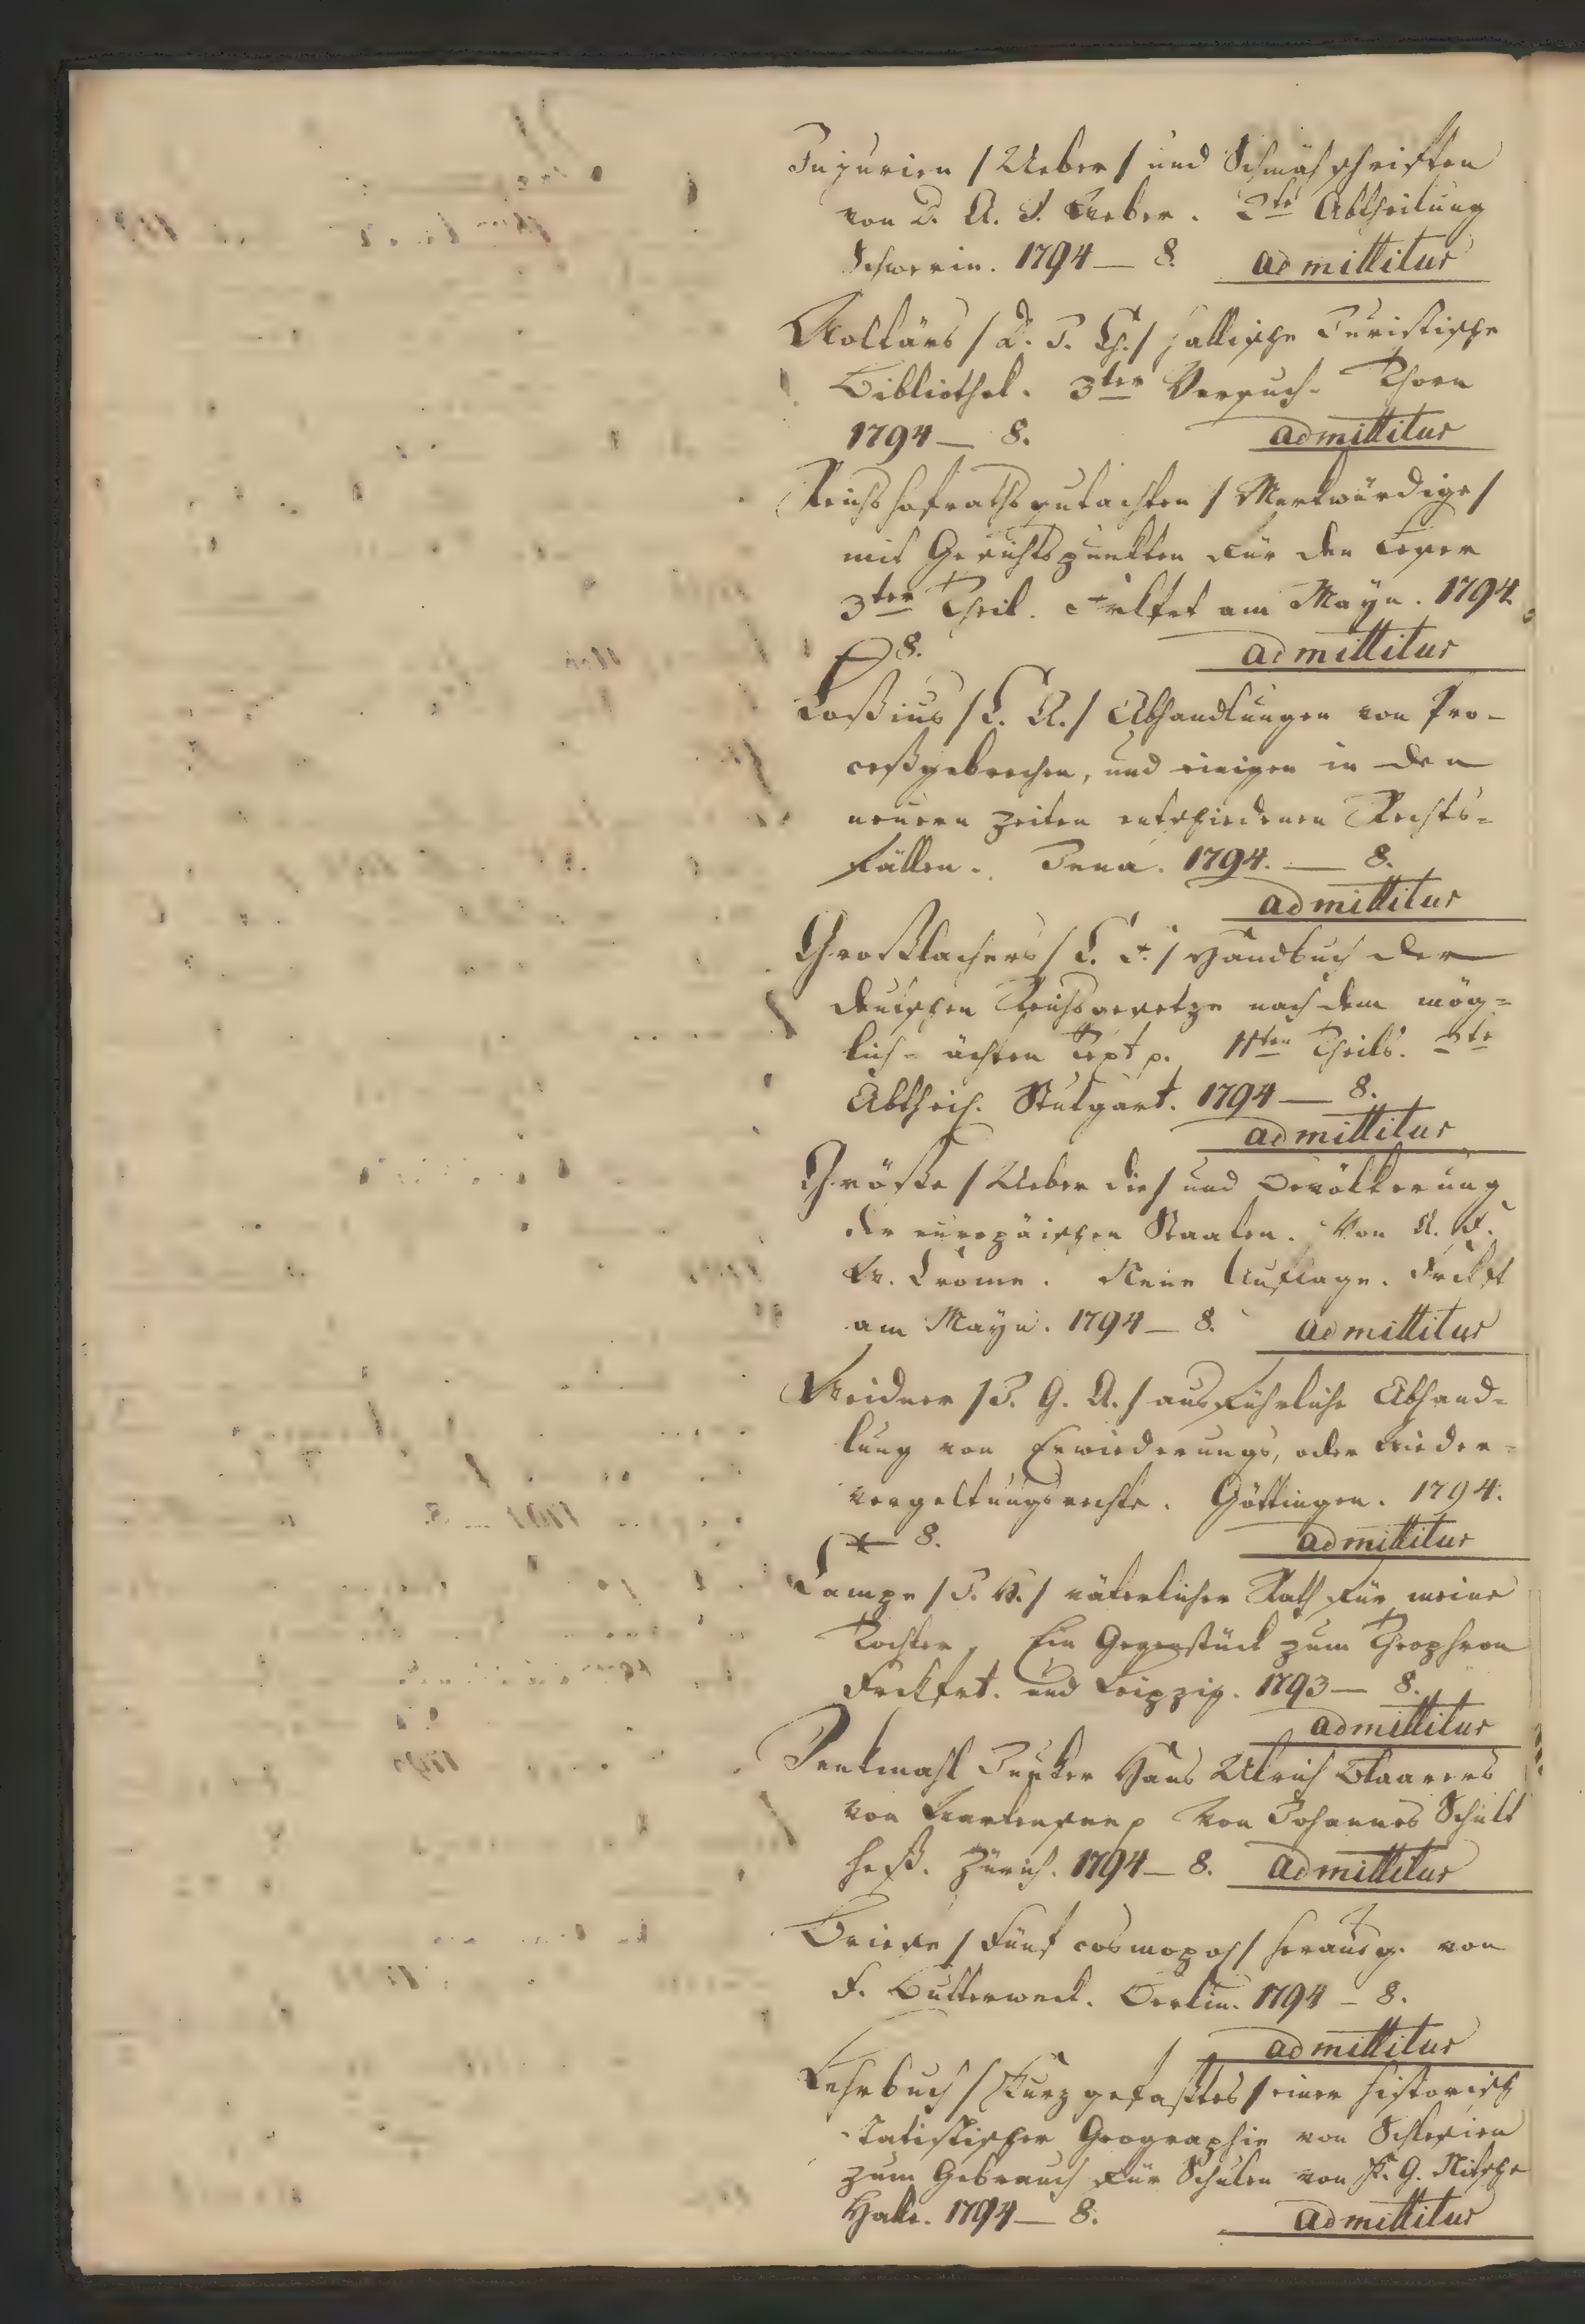 Injurien /Ueber/ und Schmähschriften
von D. A. D. Weber. 2te Abtheilung
Schwerin. 1794 — 8. admittitur
Woltärs /D. J. Ch./ hallische Juristische
Bibliothek. 3ter Versuch. Thorn
1794 — 8. admittitur
Reichshofrathsgutachten /Merkwürdige/
mit Gesichtspunkten für den Leser
3ter Theil. am Mayn. 1794.
— 8. admittitur
Loßius /C. A./ Abhandlungen von Pro-
ceßgebrechen, und einigen in den
neuern Zeiten entschiedenen Rechts=
fällen. Jena. 1794. — 8.
admittitur
Gerstlachers /C. F./ Handbuch der
deutschen Reichsgesetze nach dem mög=
lich-ächten Text p. 11ten Theils. 3te
Abtheil. Stutgart. 1794 — 8.
admittitur
Größe /Ueber die/ und Bevölkerung
der europäischen Staaten. Von A. F.
W. Crome. Neue Auflage. Frckft
am Mayn. 1794 — 8. admittitur
Weidner /J. G. A./ ausführliche Abhand=
lung von Erwiederungs, oder Wieder=
vergeltungsrechte. Göttingen. 1794.
— 8. admittitur
Campe /J. H./ väterlicher Rath für meine
Tochter, Ein Gegenstück zum Theophron
Frckfrt. und Leipzig. 1793 — 8.
admittitur
Denkmahl Junker Hans Ulrich Blaarers
von Wartensee p von Johannes Schult
heß. Zürich. 1794 — 8. admittitur
Briefe /Fünf cosmopol/ herausg. von
F. Butterweck. Berlin. 1794 — 8.
admittitur
Lehrbuch /Kurzgefaßtes/ einer historisch
statistischer Geographie von Schlesien
zum Gebrauch für Schulen von F. G. Nitsche
Halle. 1794 — 8. admittitur